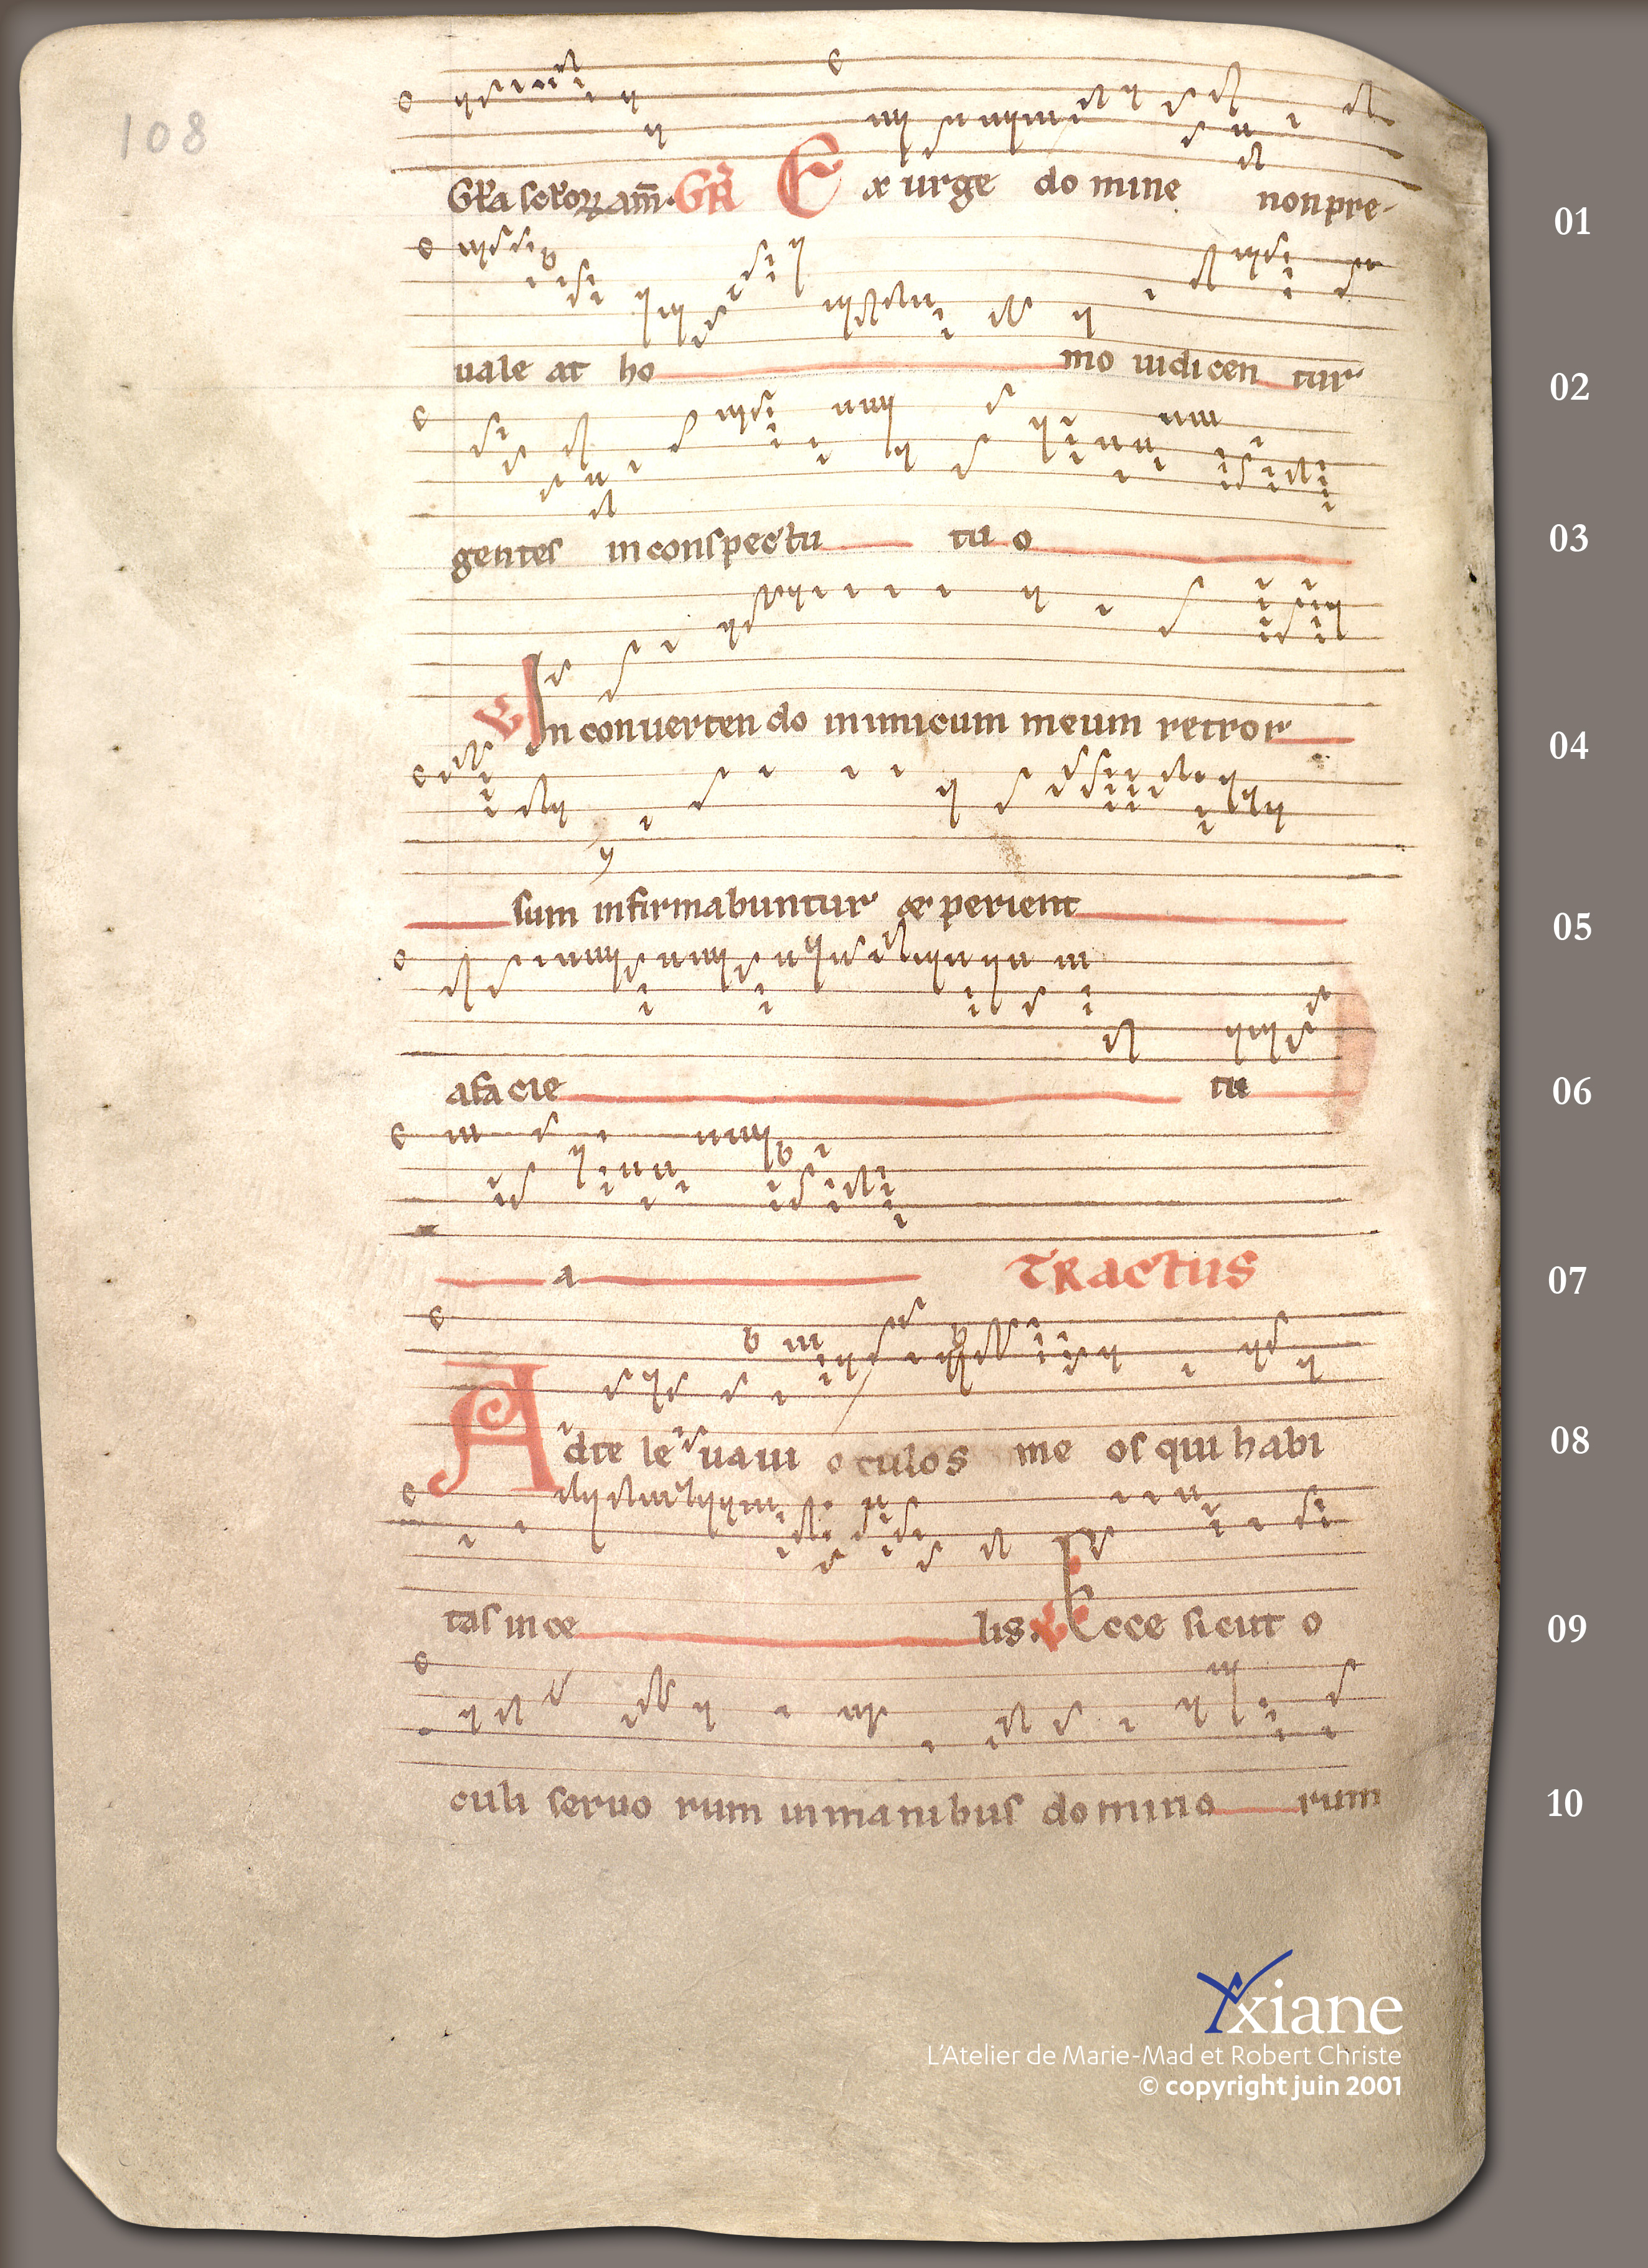 108
Gl'a seculorum am̄. GR̄ Exurge domine non pre-
01
uale at ho mo iudicen tur
02
gentes in conspectu tu o
03
℣ In conuerten do inimicum meum retror
04
sum infirmabuntur & perient
05
a facie tu
06
a TRactus
07
Ad te leuaui oculos me os qui habi
08
tas in ce lis. ℣ Ecce sicut o
09
culi seruo rum in manibus domino rum
10
Yxiane
L'Atelier de Marie-Mad et Robert Christe
© copyright juin 2001